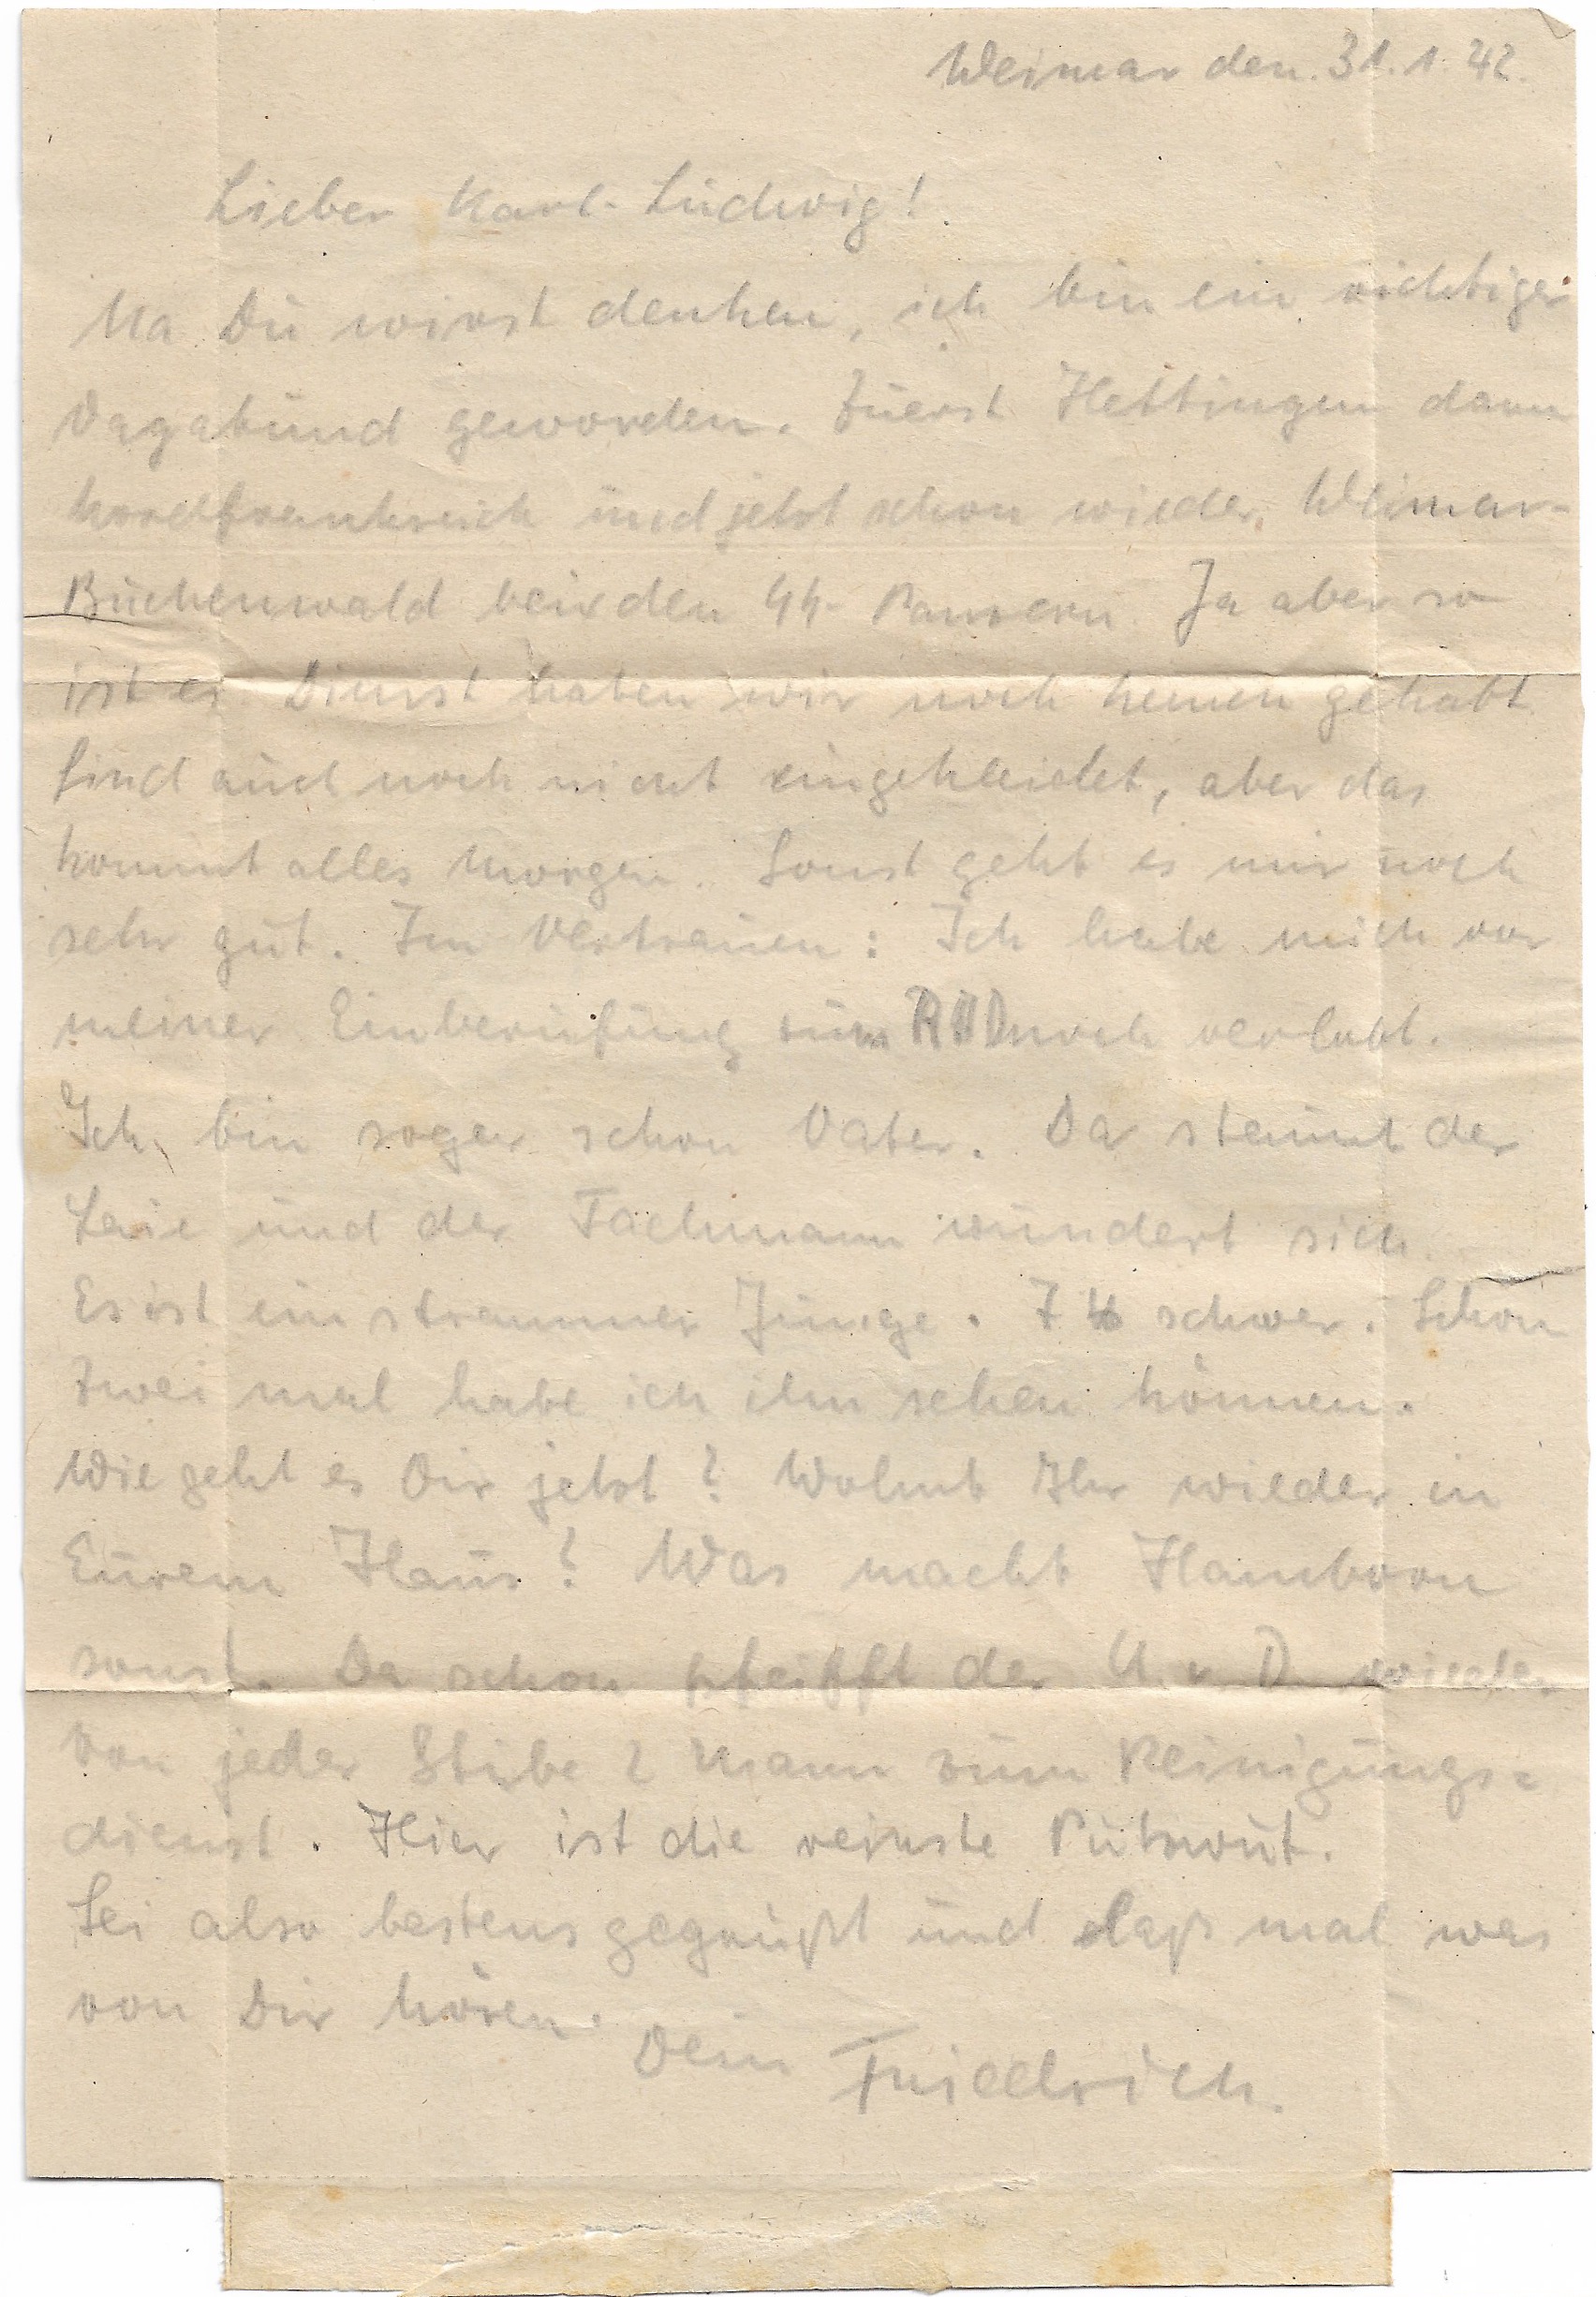 Weimar den. 31.1.42.
Lieber Karl-Ludwig!
Na Du wirst denken, ich bin ein richtiger
Vagabund geworden. Zuerst Hettingen dann
Nordfrankreich und jetzt schon wieder Weimar-
Buchenwald bei den SS-Panzern. Ja aber so
ist es. Dienst haben wir noch keinen gehabt
sind auch noch nicht eingekleidet, aber das
kommt alles Morgen. Sonst geht es mir noch
sehr gut. Im Vertrauen: Ich habe mich vor
meiner Einberufung zum RAD noch verlobt.
Ich bin sogar schon Vater. Da staunt der
Laie und der Fachmann wundert sich.
Es ist ein strammer Junge. 7 ℔ schwer. Schon
zwei mal habe ich ihn sehen können.
Wie geht es Dir jetzt? Wohnt Ihr wieder in
Eurem Haus? Was macht Hamborn
sonst. Da schon pfeifft der U.v.D. wieder
von jeder Stube 2 Mann zum Reinigungs=
dienst. Hier ist die reinste Putzwut.
Sei also bestens gegrüßt und laß mal was
von Dir hören.
Dein Friedrich.